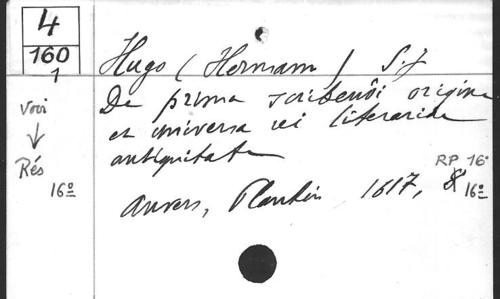 4
160
1
Hugo (Hermann) S.J
De prima scribendi origine
voir
et universa rei literariae
↓
antiquitate
Rés
RP 16º
16º
Anvers, Plantin 1617, 8º
16º